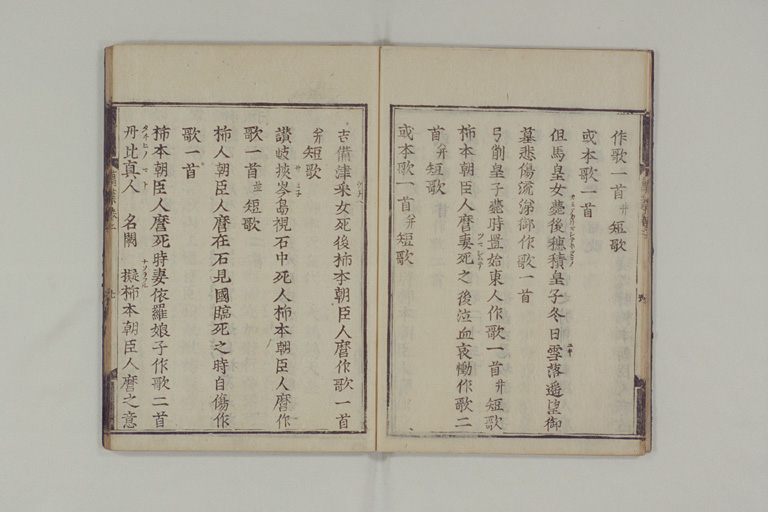 作歌一首 并 短歌
或本歌一首
但馬皇女薨後穗積皇子冬日雪落遙望御
墓悲傷流涕御作歌一首
弓削皇子薨時置始東人作歌一首 并 短歌
柿本朝臣人麿妻死之後泣血哀慟作歌二
首 并 短歌
或本歌一首 并 短歌
吉備津釆女死後柿本朝臣人麿作歌一首
并 短歌
讃岐狹岑島視石中死人柿本朝臣人麿作
歌一首 並 短歌
柿人朝臣人麿在石見國臨死之時自傷作
歌一首
柿本朝臣人麿死時妻依羅娘子作歌二首
丹比真人 名闕 擬柿本朝臣人麿之意